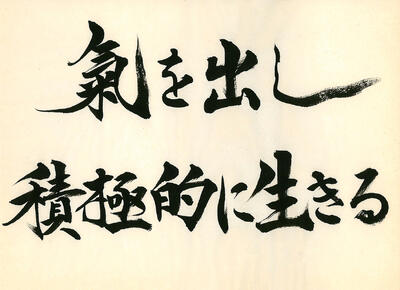 氣を出し
積極的に生きる